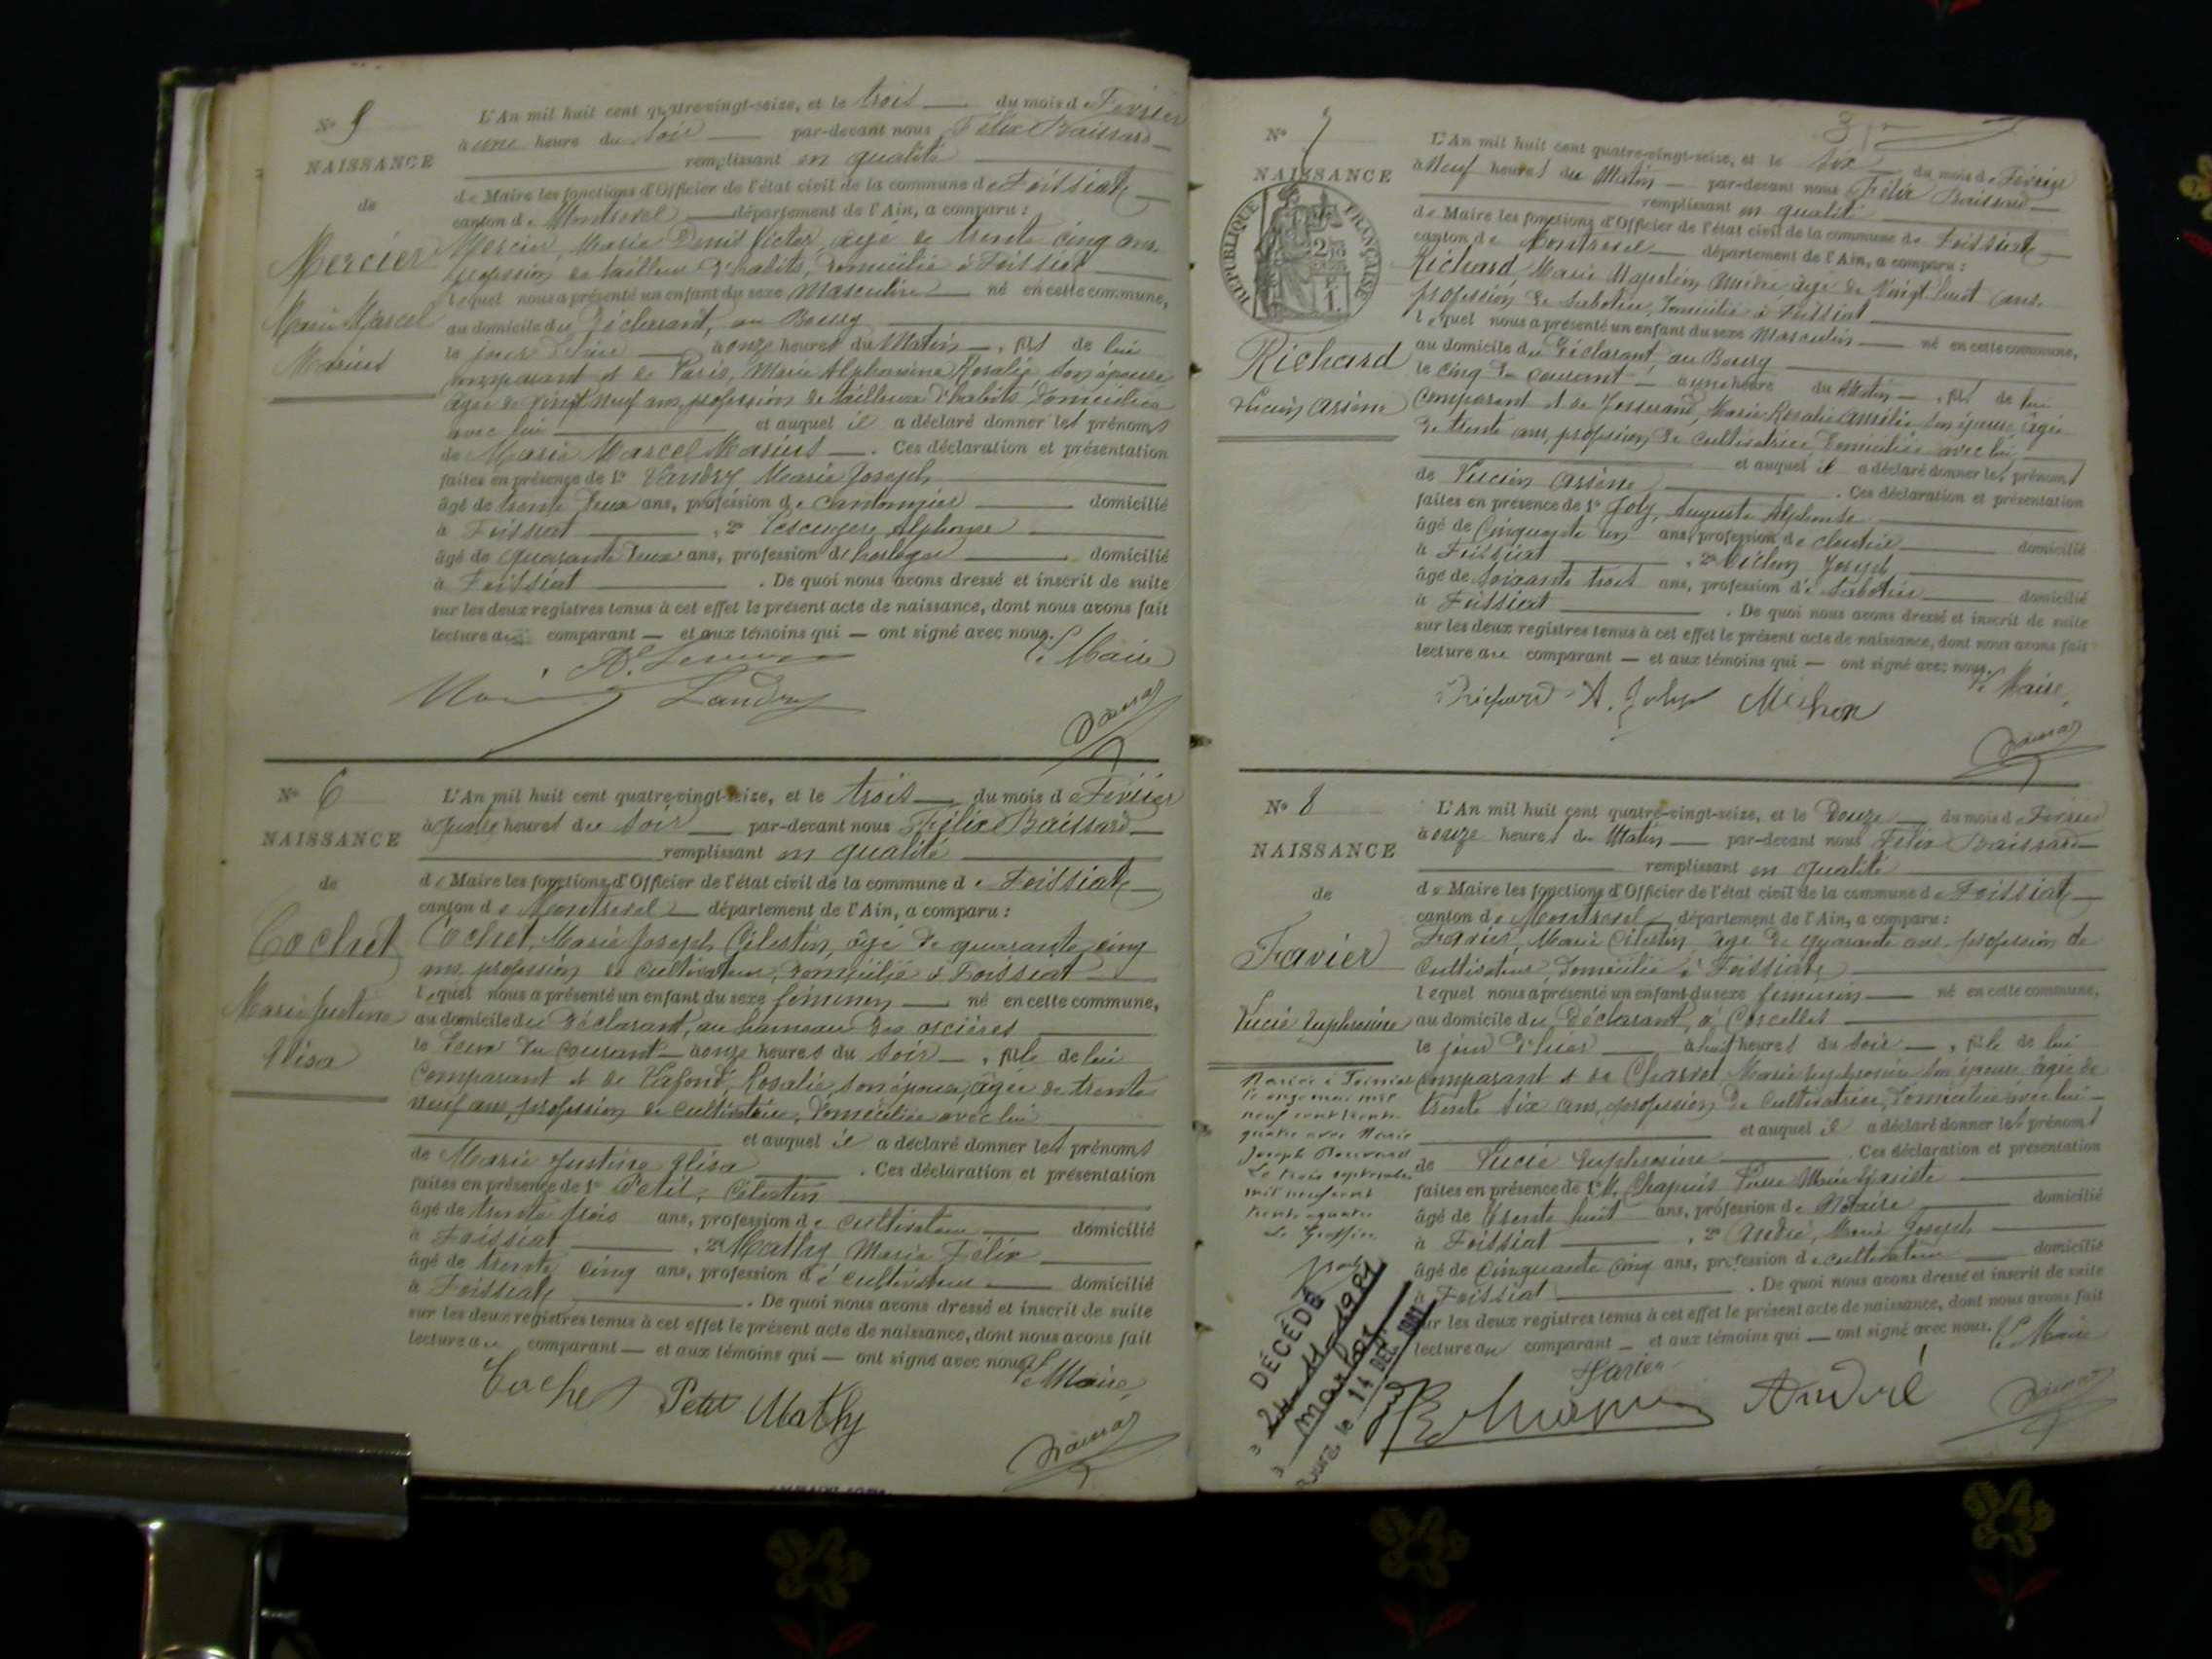 N° 5
NAISSANCE
de
Mercier
Marie Marcel
Marius
L'An mil huit cent quatre-vingt-seize, et le trois du mois de Février
à une heure du soir par-devant nous Félix Baissard
remplissant en qualité
de Maire les fonctions d'Officier de l'état civil de la commune de Foissiat
canton de Montrevel département de l'Ain, a comparu :
Mercier, Marie Denis Victor, âgé de trente cinq ans
profession de tailleur d'habits, domicilié à Foissiat
lequel nous a présenté un enfant du sexe Masculin né en cette commune,
au domicile du déclarant, au Bourg
le jour à onze heures du Matin, fils de lui
comparant et de Paris, Marie Alphonsine Rosalie son épouse
âgée de vingt neuf ans, profession de tailleuse d'habits, domiciliée
avec lui et auquel il a déclaré donner les prénoms
de Marie Marcel Marius. Ces déclaration et présentation
faites en présence de 1° Landry Marie Joseph
âgé de trente deux ans, profession de cantonnier domicilié
à Foissiat, 2° Alphonse
âgé de quarante deux ans, profession d'horloger domicilié
à Foissiat. De quoi nous avons dressé et inscrit de suite
sur les deux registres tenus à cet effet le présent acte de naissance, dont nous avons fait
lecture au comparant — et aux témoins qui — ont signé avec nous.
Le Maire
Landry
N° 6
NAISSANCE
de
Cochet
Marie Justine
Elisa
L'An mil huit cent quatre-vingt-seize, et le trois du mois de Février
à quatre heures du soir par-devant nous Félix Baissard
remplissant en qualité
de Maire les fonctions d'Officier de l'état civil de la commune de Foissiat
canton de Montrevel département de l'Ain, a comparu :
Cochet, Marie Joseph Célestin, âgé de quarante cinq
ans, profession de cultivateur, domicilié à Foissiat
lequel nous a présenté un enfant du sexe féminin né en cette commune,
au domicile du déclarant, au hameau des
le deux du courant à onze heures du soir, fille de lui
comparant et de Rosalie, son épouse, âgée de trente
neuf ans, profession de cultivatrice, domiciliée avec lui
et auquel il a déclaré donner les prénoms
de Marie Justine Elisa. Ces déclaration et présentation
faites en présence de 1° Petit, Célestin
âgé de trente trois ans, profession de cultivateur domicilié
à Foissiat, 2° Mathy Marie Félix
âgé de trente cinq ans, profession de cultivateur domicilié
à Foissiat. De quoi nous avons dressé et inscrit de suite
sur les deux registres tenus à cet effet le présent acte de naissance, dont nous avons fait
lecture au comparant — et aux témoins qui — ont signé avec nous.
Le Maire
Cochet Petit Mathy
N° 7
NAISSANCE
RÉPUBLIQUE FRANÇAISE
Richard
Lucien Arsène
L'An mil huit cent quatre-vingt-seize, et le six du mois de Février
à Neuf heures du Matin par-devant nous Félix Baissard
remplissant en qualité
de Maire les fonctions d'Officier de l'état civil de la commune de Foissiat
canton de Montrevel département de l'Ain, a comparu :
Richard, Marie âgé de vingt huit ans
profession de sabotier, domicilié à Foissiat
lequel nous a présenté un enfant du sexe Masculin né en cette commune,
au domicile du déclarant, au Bourg
le cinq du courant à une heure du Matin, fils de lui
comparant et de Josserand, Marie Rosalie Amélie son épouse âgée
de trente ans, profession de cultivatrice domiciliée avec lui
et auquel il a déclaré donner les prénoms
de Lucien Arsène. Ces déclaration et présentation
faites en présence de 1° Joly, Auguste Alphonse
âgé de cinquante un ans, profession de domicilié
à Foissiat, 2° Michon Joseph
âgé de soixante trois ans, profession de sabotier domicilié
à Foissiat. De quoi nous avons dressé et inscrit de suite
sur les deux registres tenus à cet effet le présent acte de naissance, dont nous avons fait
lecture au comparant — et aux témoins qui — ont signé avec nous.
Le Maire
Richard A. Joly Michon
N° 8
NAISSANCE
de
Favier
Lucie Euphrosine
L'An mil huit cent quatre-vingt-seize, et le Douze du mois de Février
à onze heures du Matin par-devant nous Félix Baissard
remplissant en qualité
de Maire les fonctions d'Officier de l'état civil de la commune de Foissiat
canton de Montrevel département de l'Ain, a comparu :
Favier, Marie Célestin âgé de quarante ans, profession de
cultivateur, domicilié à Foissiat
lequel nous a présenté un enfant du sexe féminin né en cette commune,
au domicile du déclarant, à Corcelles
le jour d'hier à huit heures du soir, fille de lui
comparant et de Charvet Marie Euphrosine son épouse âgée de
trente six ans, profession de cultivatrice, domiciliée avec lui
et auquel il a déclaré donner les prénoms
de Lucie Euphrosine. Ces déclaration et présentation
faites en présence de 1° M. Chapuis Marie
âgé de trente huit ans, profession de Notaire domicilié
à Foissiat, 2° André, Marie Joseph
âgé de cinquante cinq ans, profession de cultivateur domicilié
à Foissiat. De quoi nous avons dressé et inscrit de suite
sur les deux registres tenus à cet effet le présent acte de naissance, dont nous avons fait
lecture au comparant — et aux témoins qui — ont signé avec nous.
Le Maire
Favier
André
Mariée à Foissiat
le onze mai mil
neuf cent trente
quatre avec Marie
Joseph
Le trois septembre
mil neuf cent
trente quatre
Le Greffier
DÉCÉDÉ
24-11-1981
le 14 DEC. 1981